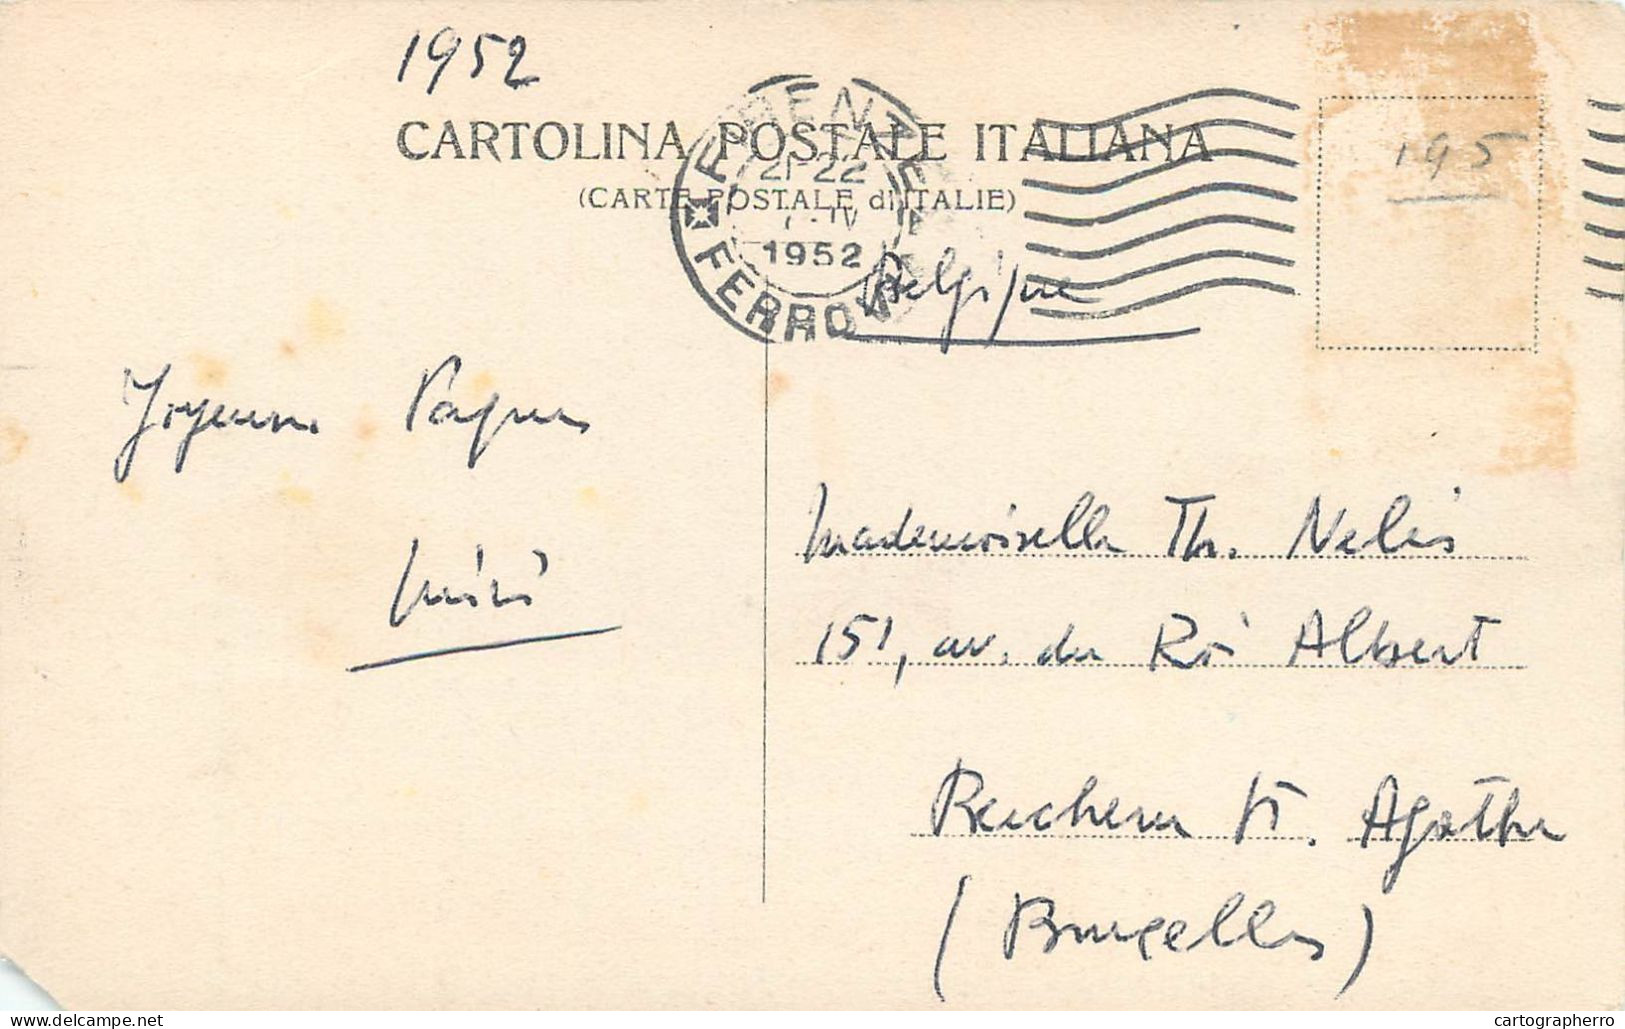 1952
CARTOLINA POSTALE ITALIANA
(CARTE POSTALE d'ITALIE)
FIRENZE
21-22
IV
1952
FERROVIA
195
Belgique
Joyeuses Paques
Mimi
Mademoiselle Th. Nelis
151, av. du Roi Albert
Berchem St. Agathe
(Bruxelles)
delcampe.net
cartographerro